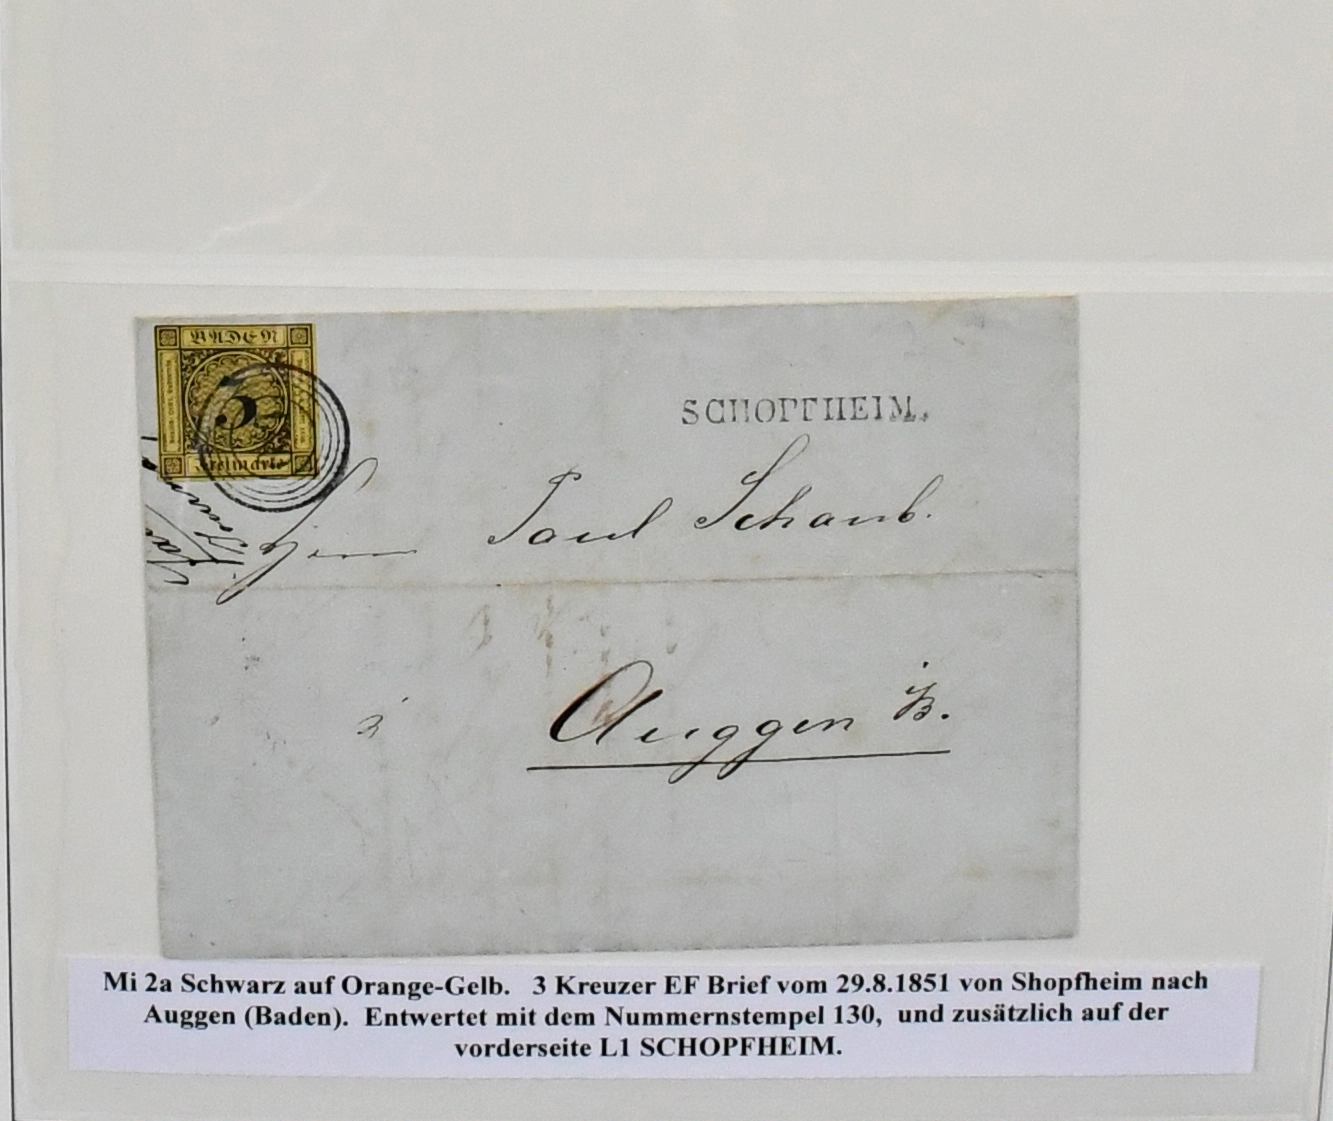 BADEN
3
Freimarke
SCHOPFHEIM.
Herrn Paul Schaub.
à
Auggen B.
Mi 2a Schwarz auf Orange-Gelb. 3 Kreuzer EF Brief vom 29.8.1851 von Shopfheim nach
Auggen (Baden). Entwertet mit dem Nummernstempel 130, und zusätzlich auf der
vorderseite L1 SCHOPFHEIM.